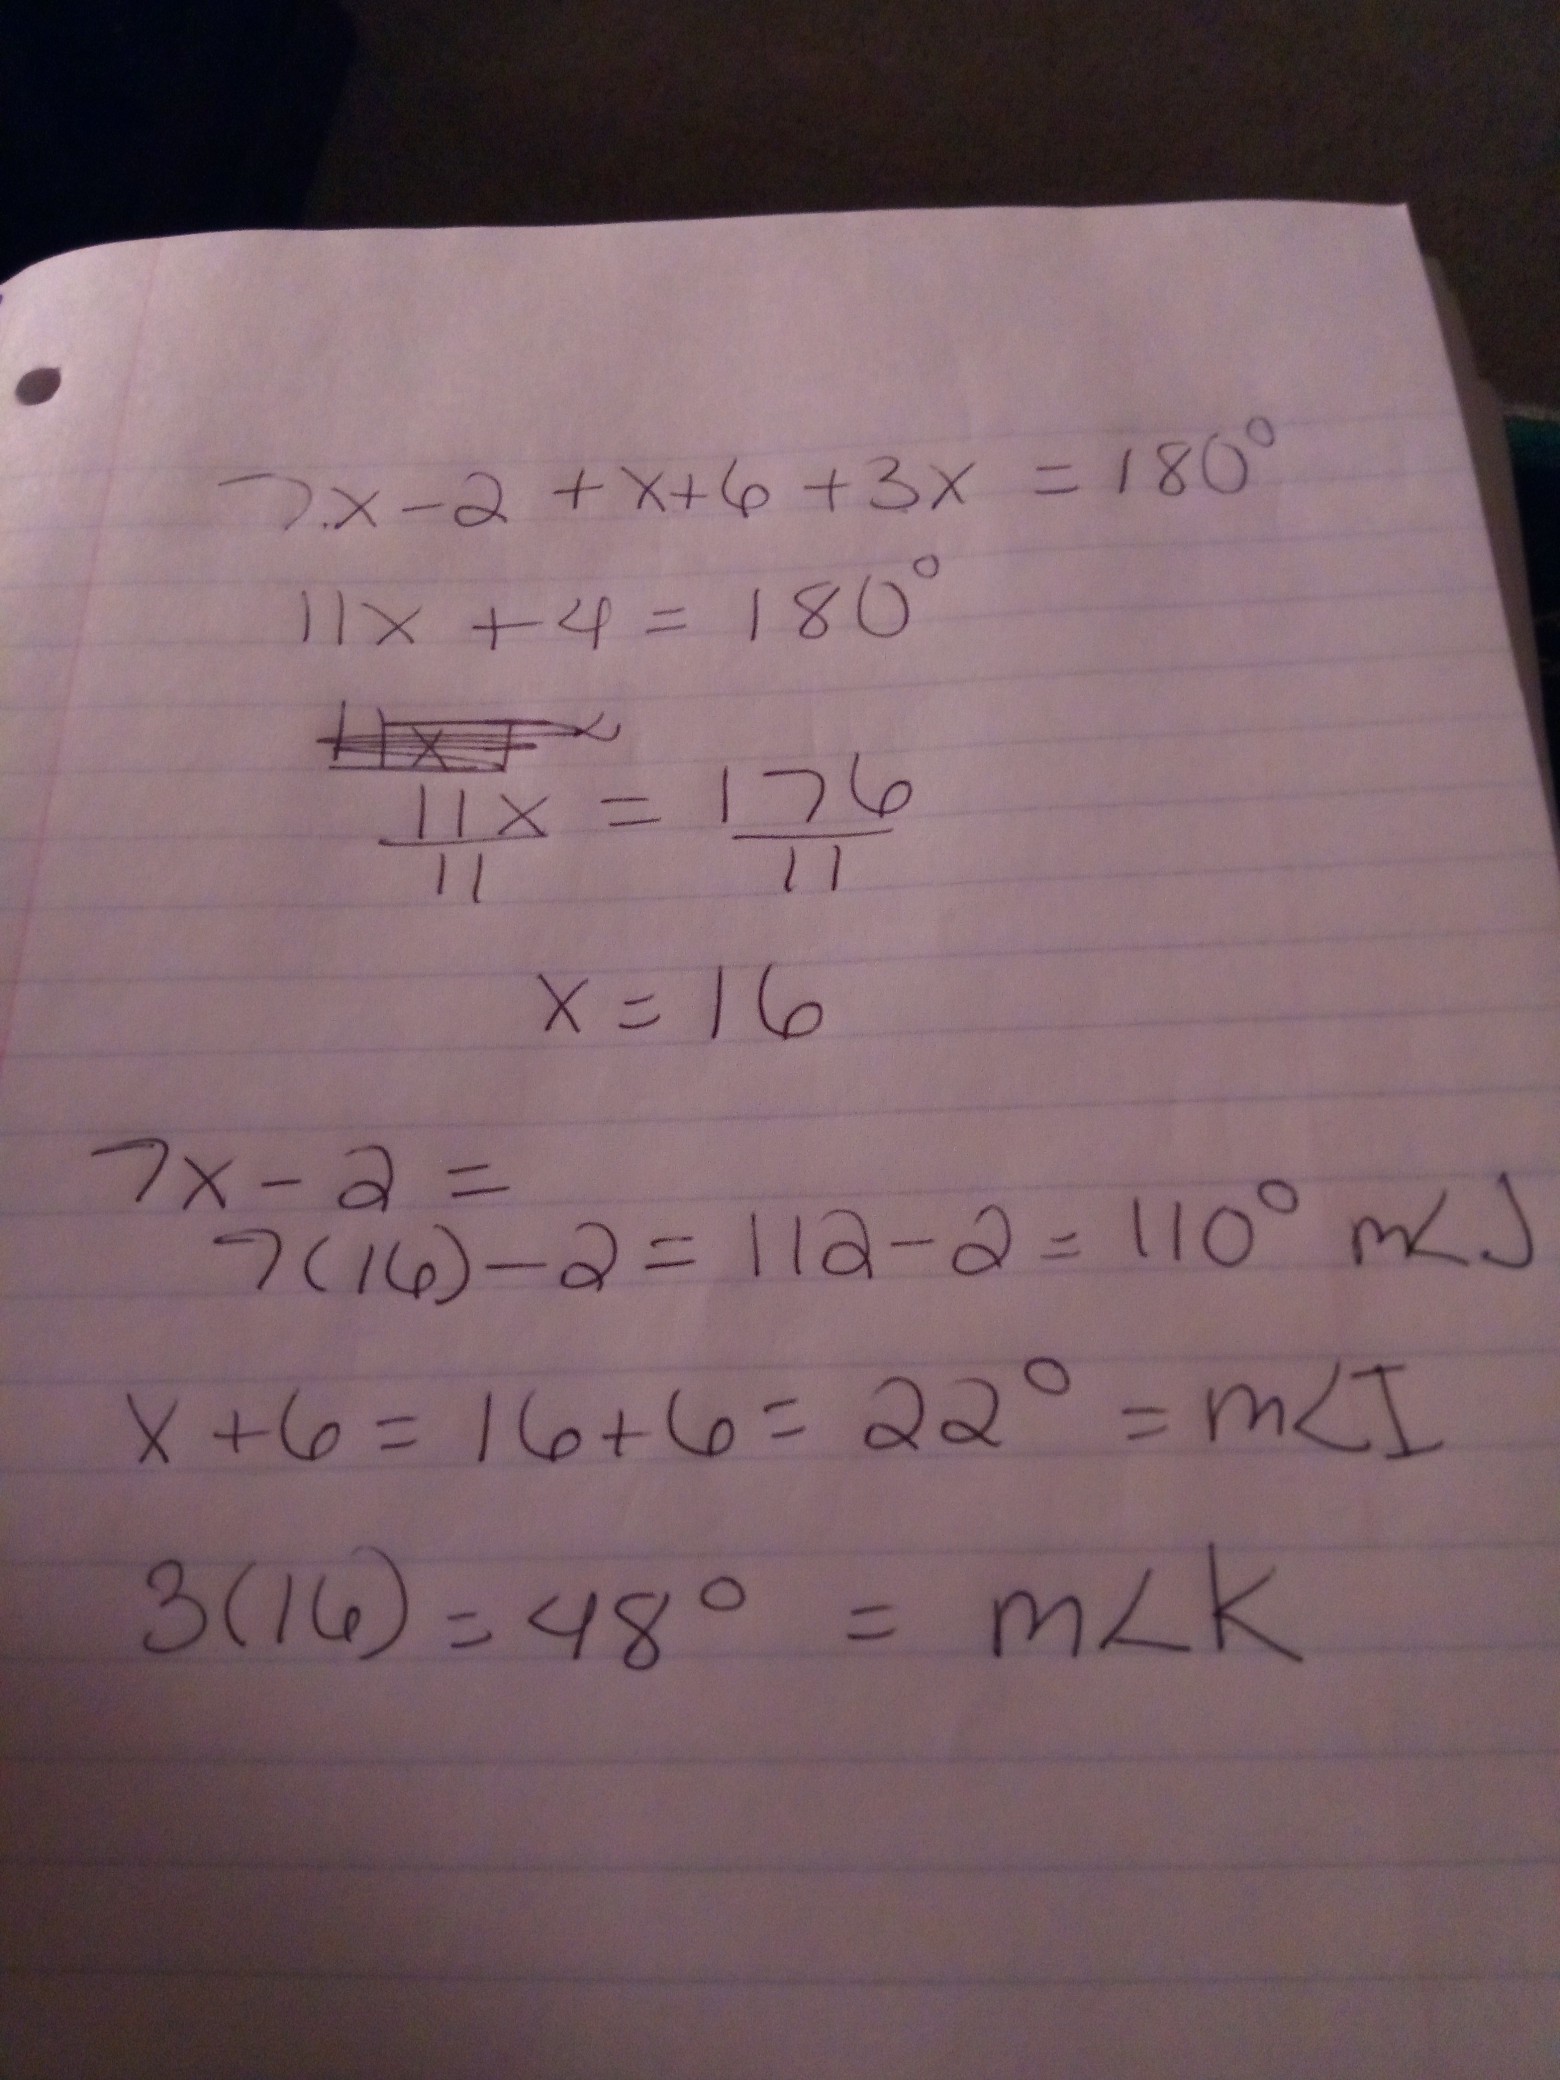 7x-2 +x+6 +3x = 180°
11x +4 = 180°
11x = 176
11 11
x = 16
7x - 2 =
7(16) - 2 = 112 - 2 = 110° m∠J
x + 6 = 16+6 = 22° = m∠I
3(16) = 48° = m∠K